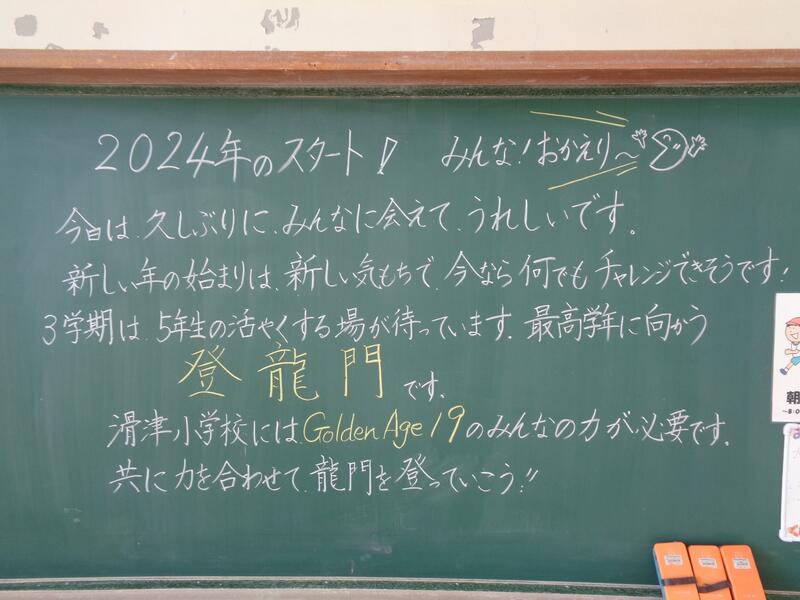 2024年のスタート! みんな!おかえり〜
今日は、久しぶりに、みんなに会えて、うれしいです。
新しい年の始まりは、新しい気もちで、今なら何でもチャレンジできそうです!
3学期は、5年生の活やくする場が待っています。最高学年に向かう
登龍門です。
滑津小学校にはGolden Age 19のみんなの力が必要です。
共に力を合わせて、龍門を登っていこう!!
朝